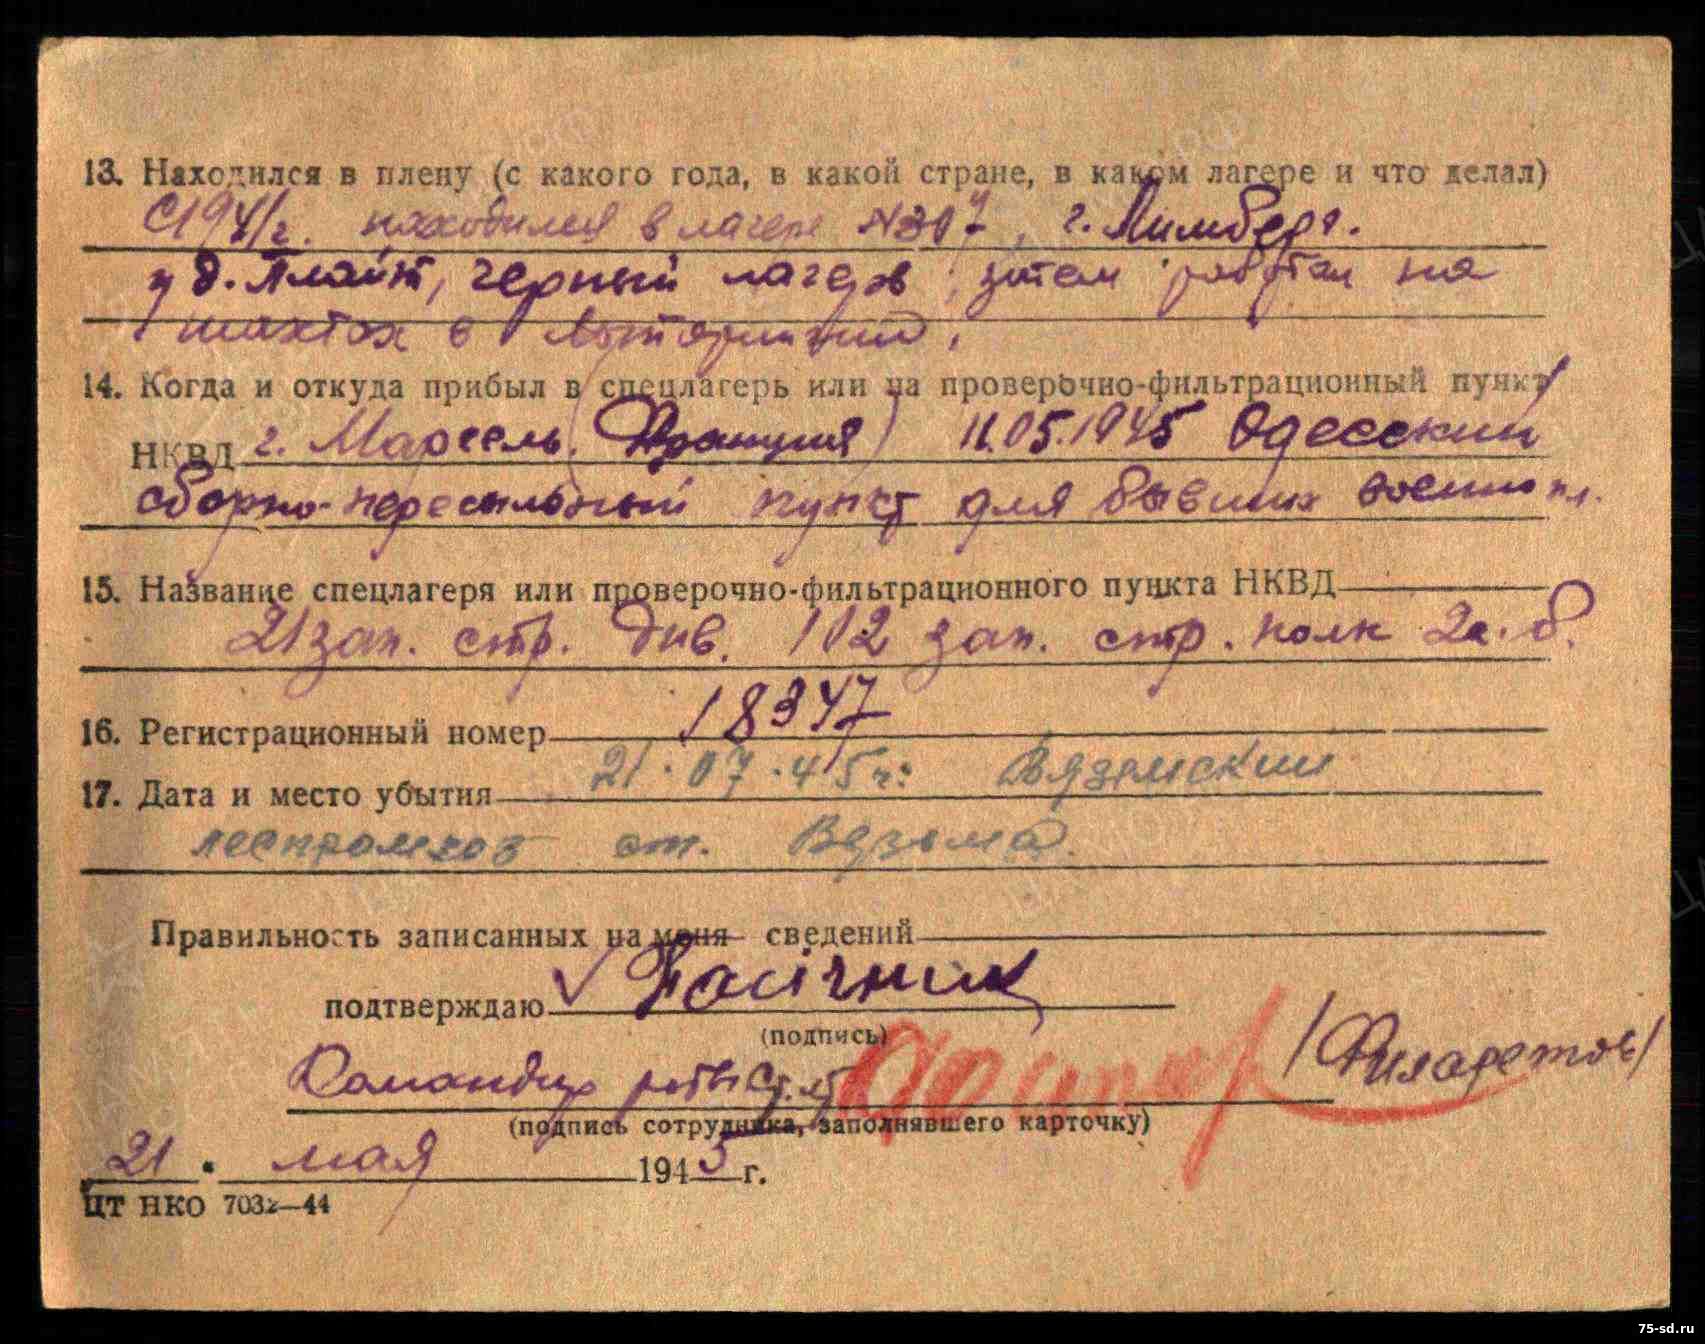 13. Находился в плену (с какого года, в какой стране, в каком лагере и что делал)
С 1941 г. находился в лагере №307, г. Лимберг.
у д. Плайт, черный лагерь, затем работал на
шахтах в
14. Когда и откуда прибыл в спецлагерь или на проверочно-фильтрационный пункт
НКВД г. Марсель (Франция) 11.05.1945 Одесский
сборно-пересыльный пункт для бывших военнопл.
15. Название спецлагеря или проверочно-фильтрационного пункта НКВД
21 зап. стр. див. 102 зап. стр. полк 2 а. б.
16. Регистрационный номер 18347
17. Дата и место убытия 21.07.45 г. Вяземский
леспромхоз ст. Вязьма.
Правильность записанных на меня сведений
подтверждаю Пасічник
(подпись)
Командир роты ст. лт /Филаретов/
(подпись сотрудника, заполнявшего карточку)
21 мая 1945 г.
ЦТ НКО 7032—44
75-sd.ru